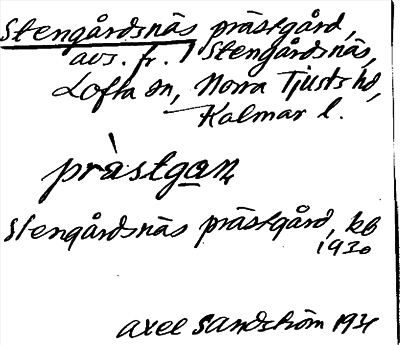 Stengårdsnäs prästgård,
avs. fr. 1 Stengårdsnäs,
Lofta sn, Norra Tjusts hd,
Kalmar l.
prästga̲ṇ
Stengårdsnäs prästgård, kb
1930
Axel Sandström 1931